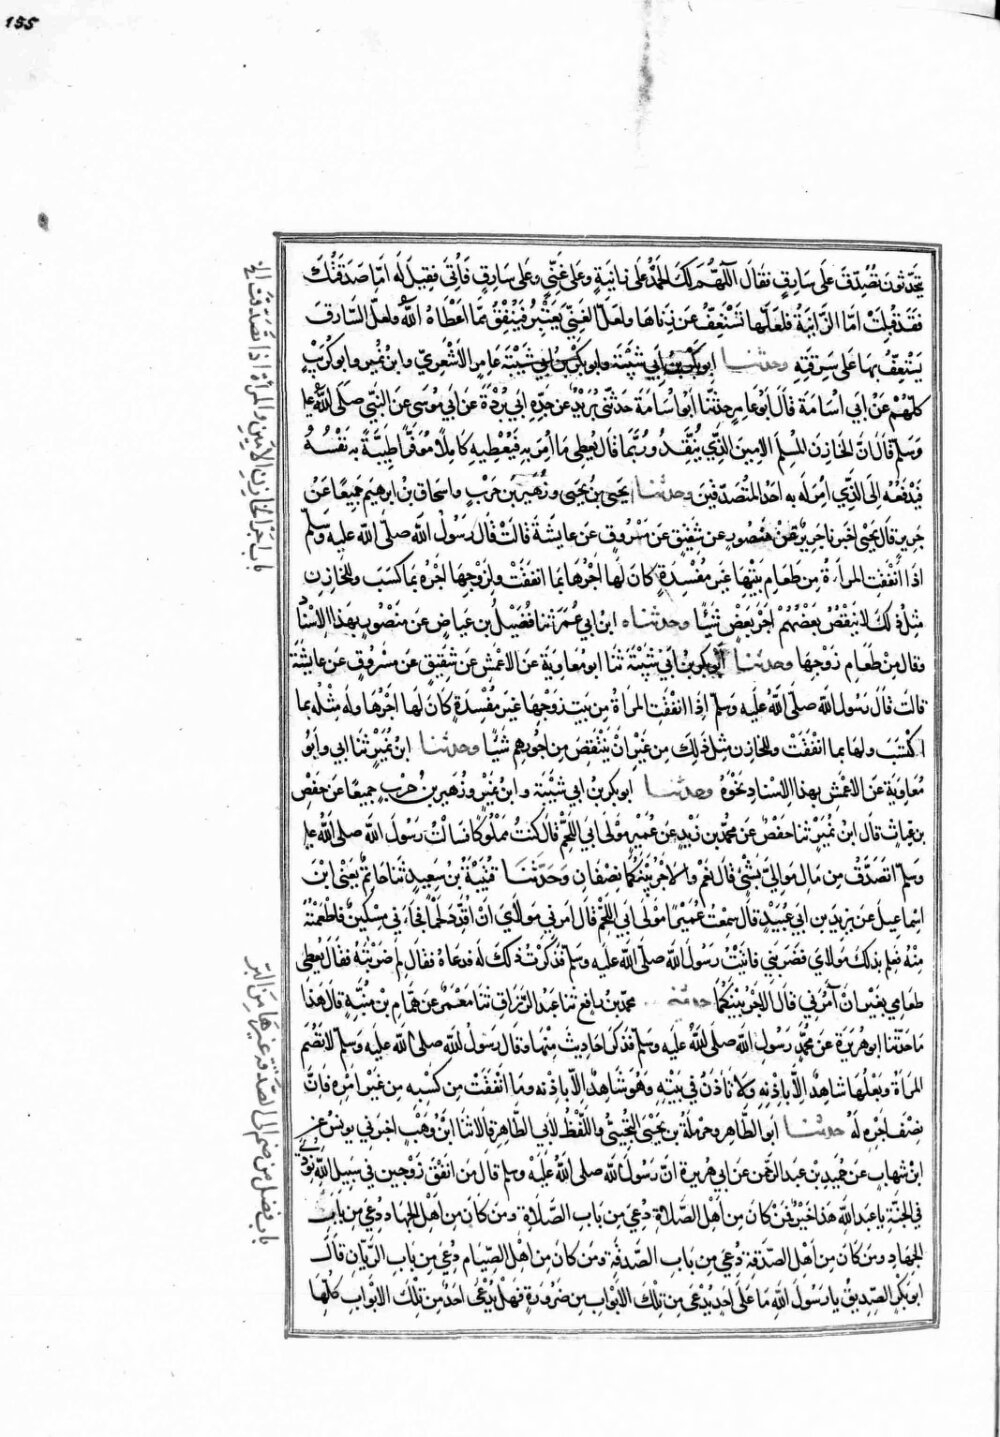 155
يتحدثون تصدق على سارق فقال اللهم لك الحمد على زانية وعلى غني وعلى سارق فأتى فقيل له اما صدقتك
فقد قبلت اما الزانية فلعلها تستعف عن زناها ولعل الغني يعتبر فينفق مما اعطاه الله ولعل السارق
يستعف بها على سرقته وحدثنا ابو بكر بن ابي شيبة وابو عامر الاشعري وابن نمير وابو كريب
كلهم عن ابي اسامة قال ابو عامر حدثنا ابو اسامة حدثنى بريد عن جده ابي بردة عن ابي موسى عن النبي صلى الله عليه
وسلم قال ان الخازن المسلم الامين الذي ينفذ وربما قال يعطى ما امر به فيعطيه كاملا موفرا طيبة به نفسه
فيدفعه الى الذي امر له به احد المتصدقين وحدثنا يحيى بن يحيى وزهير بن حرب واسحاق بن ابرهيم جميعا عن
جرير قال يحيى اخبرنا جرير عن منصور عن شقيق عن مسروق عن عايشة قالت قال رسول الله صلى الله عليه وسلم
اذا انفقت المراة من طعام بيتها غير مفسدة كان لها اجرها بما انفقت ولزوجها اجره بما كسب وللخازن
مثل ذلك لا ينقص بعضهم اجر بعض شيئا وحدثناه ابن ابي عمر ثنا فضيل بن عياض عن منصور بهذا الاسناد
وقال من طعام زوجها وحدثنا ابو بكر بن ابي شيبة ثنا ابو معاوية عن الاعمش عن شقيق عن مسروق عن عايشة
قالت قال رسول الله صلى الله عليه وسلم اذا انفقت المراة من بيت زوجها غير مفسدة كان لها اجرها وله مثله بما
اكتسب ولها بما انفقت وللخازن مثل ذلك من غير ان ينتقص من اجورهم شيئا وحدثنا ابن نمير ثنا ابي وابو
معاوية عن الاعمش بهذا الاسناد نحوه وحدثنا ابو بكر بن ابي شيبة وابن نمير وزهير بن حرب جميعا عن حفص
بن غياث قال ابن نمير ثنا حفص عن محمد بن زيد عن عمير مولى ابي اللحم قال كنت مملوكا فسالت رسول الله صلى الله عليه
وسلم اتصدق من مال موالي بشئ قال نعم والاجر بينكما نصفان وحدثنا قتيبة بن سعيد ثنا حاتم يعنى ابن
اسماعيل عن يزيد بن ابي عبيد قال سمعت عميرا مولى ابي اللحم قال امرني مولاي ان اقدد لحما فجاءني مسكين فاطعمته
منه فعلم بذلك مولاي فضربني فاتيت رسول الله صلى الله عليه وسلم فذكرت ذلك له فدعاه فقال لم ضربته فقال يعطى
طعامي بغير ان آمره فقال الاجر بينكما حدثنا محمد بن رافع ثنا عبد الرزاق ثنا معمر عن همام بن منبه قال هذا
ما حدثنا ابو هريرة عن محمد رسول الله صلى الله عليه وسلم فذكر احاديث منها وقال رسول الله صلى الله عليه وسلم لا تصم
المراة وبعلها شاهد الا باذنه ولا تاذن في بيته وهو شاهد الا باذنه وما انفقت من كسبه من غير امره فان
نصف اجره له حدثنا ابو الطاهر وحرملة بن يحيى التجيبي واللفظ لابي الطاهر قالا ثنا ابن وهب اخبرني يونس عن
ابن شهاب عن حميد بن عبد الرحمن عن ابي هريرة ان رسول الله صلى الله عليه وسلم قال من انفق زوجين في سبيل الله نودي
في الجنة يا عبد الله هذا خير فمن كان من اهل الصلاة دعي من باب الصلاة ومن كان من اهل الجهاد دعي من باب
الجهاد ومن كان من اهل الصدقة دعي من باب الصدقة ومن كان من اهل الصيام دعي من باب الريان قال
ابو بكر الصديق يا رسول الله ما على احد يدعى من تلك الابواب من ضرورة فهل يدعى احد من تلك الابواب كلها
باب اجر الخازن الامين والمراة اذا تصدقت الخ
باب فضل من ضم الى الصدقة غيرها من البر